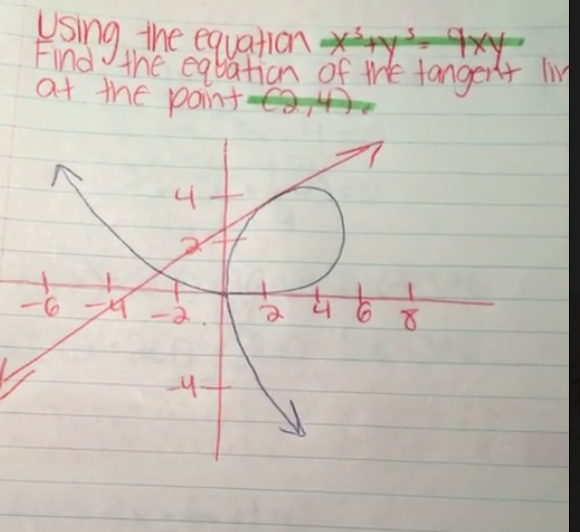 Using the equation x³+y³=9xy
Find the equation of the tangent
at the point (2,4).
4
2
-6 -4 -2 2 4 6 8
-4